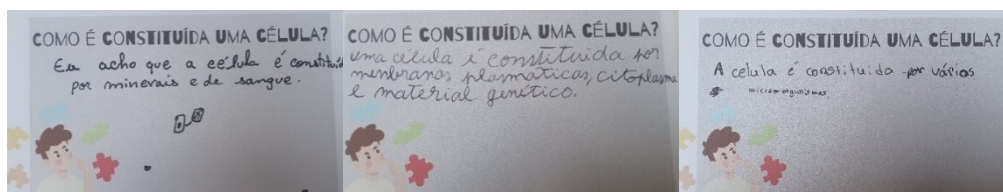 COMO É CONSTITUÍDA UMA CÉLULA?
Eu acho que a célula é constituida
por minerais e de sangue.
COMO É CONSTITUÍDA UMA CÉLULA?
uma célula é constituida por
menbranas plasmáticas, citoplasma
e material genético.
COMO É CONSTITUÍDA UMA CÉLULA?
A celula é constituida por vários
microorganismos.